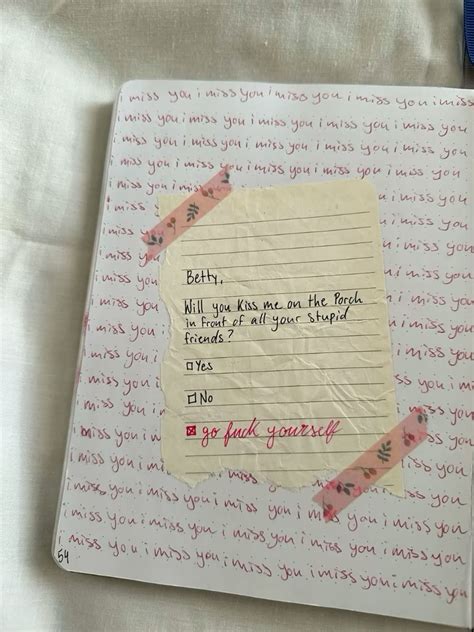 i miss you i miss you i miss you i miss you i miss
i miss you i miss you i miss you i miss you i miss you
i miss you i miss you i miss you i miss you i miss you
i miss you i miss you i miss you i miss you i miss you
i miss you i miss i miss you
i miss i miss you
i miss miss you
i miss miss you
i miss miss you
i miss you miss you
i miss you miss you
i miss you miss you
i miss you miss you
i miss you i miss you
i miss you i miss you
i miss you i miss you
Betty,
Will you Kiss me on the Porch
in front of all your stupid
friends?
Yes
No
go fuck yourself
i miss you i miss you i miss you i miss you i miss you
i miss you i miss you i miss you i miss you i miss you
i miss you i miss you i miss you i miss you i miss you
54